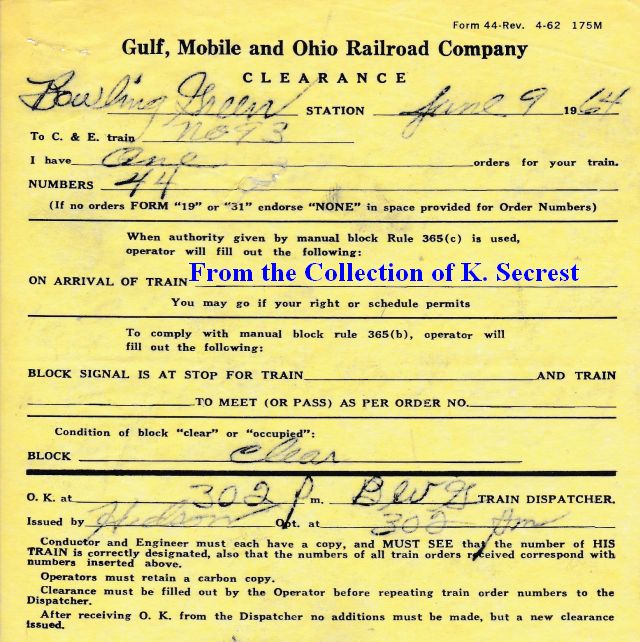 Form 44-Rev. 4-62 175M
Gulf, Mobile and Ohio Railroad Company
CLEARANCE
Bowling Green STATION June 9 1964
To C. & E. train No 93
I have One orders for your train.
NUMBERS 44
(If no orders FORM "19" or "31" endorse "NONE" in space provided for Order Numbers)
When authority given by manual block Rule 365(c) is used,
operator will fill out the following:
ON ARRIVAL OF TRAIN From the Collection of K. Secrest
You may go if your right or schedule permits
To comply with manual block rule 365(b), operator will
fill out the following:
BLOCK SIGNAL IS AT STOP FOR TRAIN AND TRAIN
TO MEET (OR PASS) AS PER ORDER NO.
Condition of block "clear" or "occupied":
BLOCK clear
O. K. at 302 p m. TRAIN DISPATCHER.
Issued by Hudson Opt. at 302 pm
Conductor and Engineer must each have a copy, and MUST SEE that the number of HIS
TRAIN is correctly designated, also that the numbers of all train orders received correspond with
numbers inserted above.
Operators must retain a carbon copy.
Clearance must be filled out by the Operator before repeating train order numbers to the
Dispatcher.
After receiving O. K. from the Dispatcher no additions must be made, but a new clearance
issued.